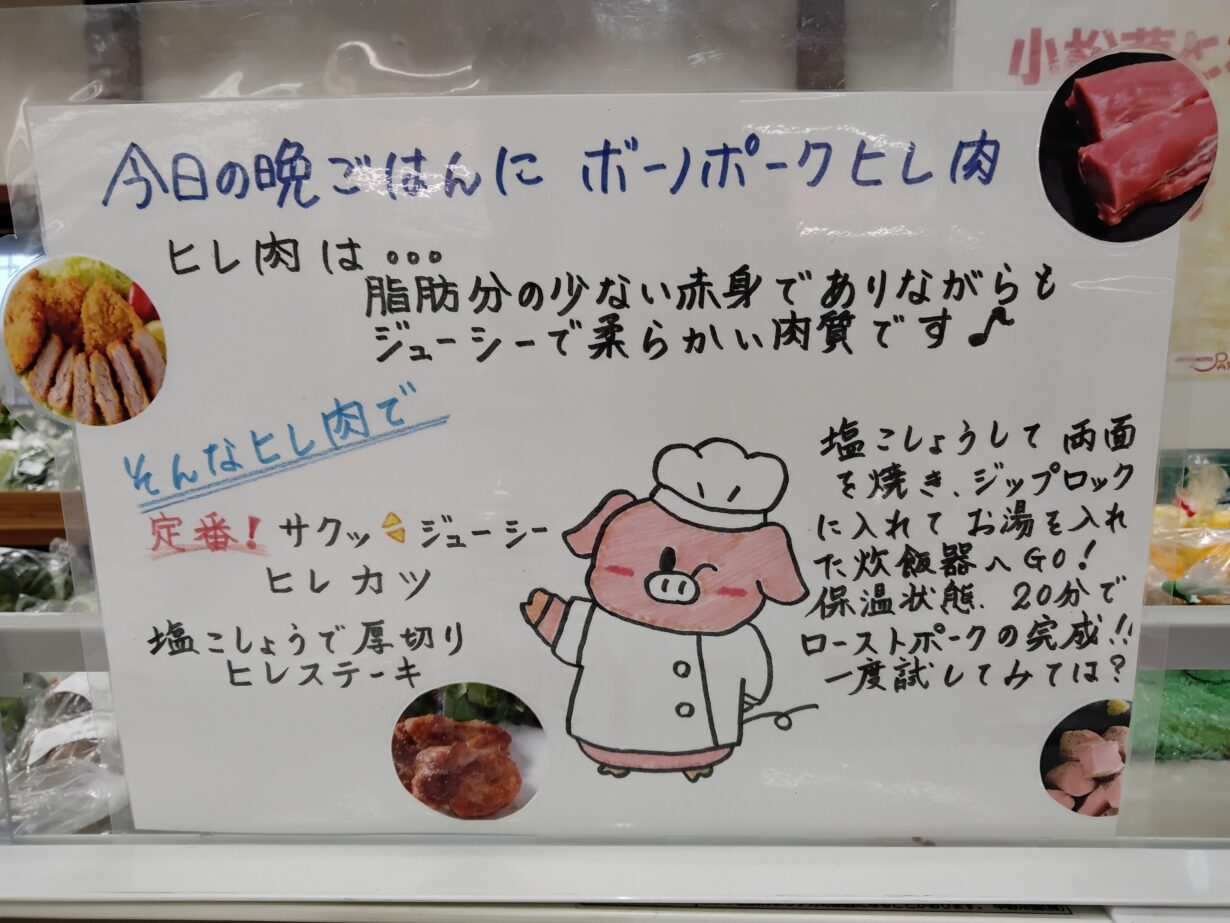 今日の晩ごはんに ボーノポークヒレ肉
ヒレ肉は...
脂肪分の少ない赤身でありながらも
ジューシーで柔らかい肉質です♪
そんなヒレ肉で
定番! サクッ ジューシー
ヒレカツ
塩こしょうで厚切り
ヒレステーキ
塩こしょうして両面
を焼き、ジップロック
に入れてお湯を入れ
た炊飯器へGO!
保温状態、20分で
ローストポークの完成!!
一度試してみては?
小松菜と